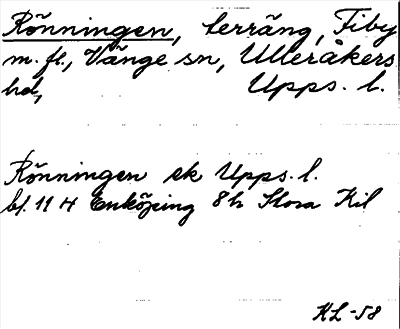 Rönningen, terräng, Tiby
m. fl., Vänge sn, Ulleråkers
hd, Upps. l.
Rönningen ek Upps. l.
bl. 11 H Enköping 8h Stora Kil
KL -58